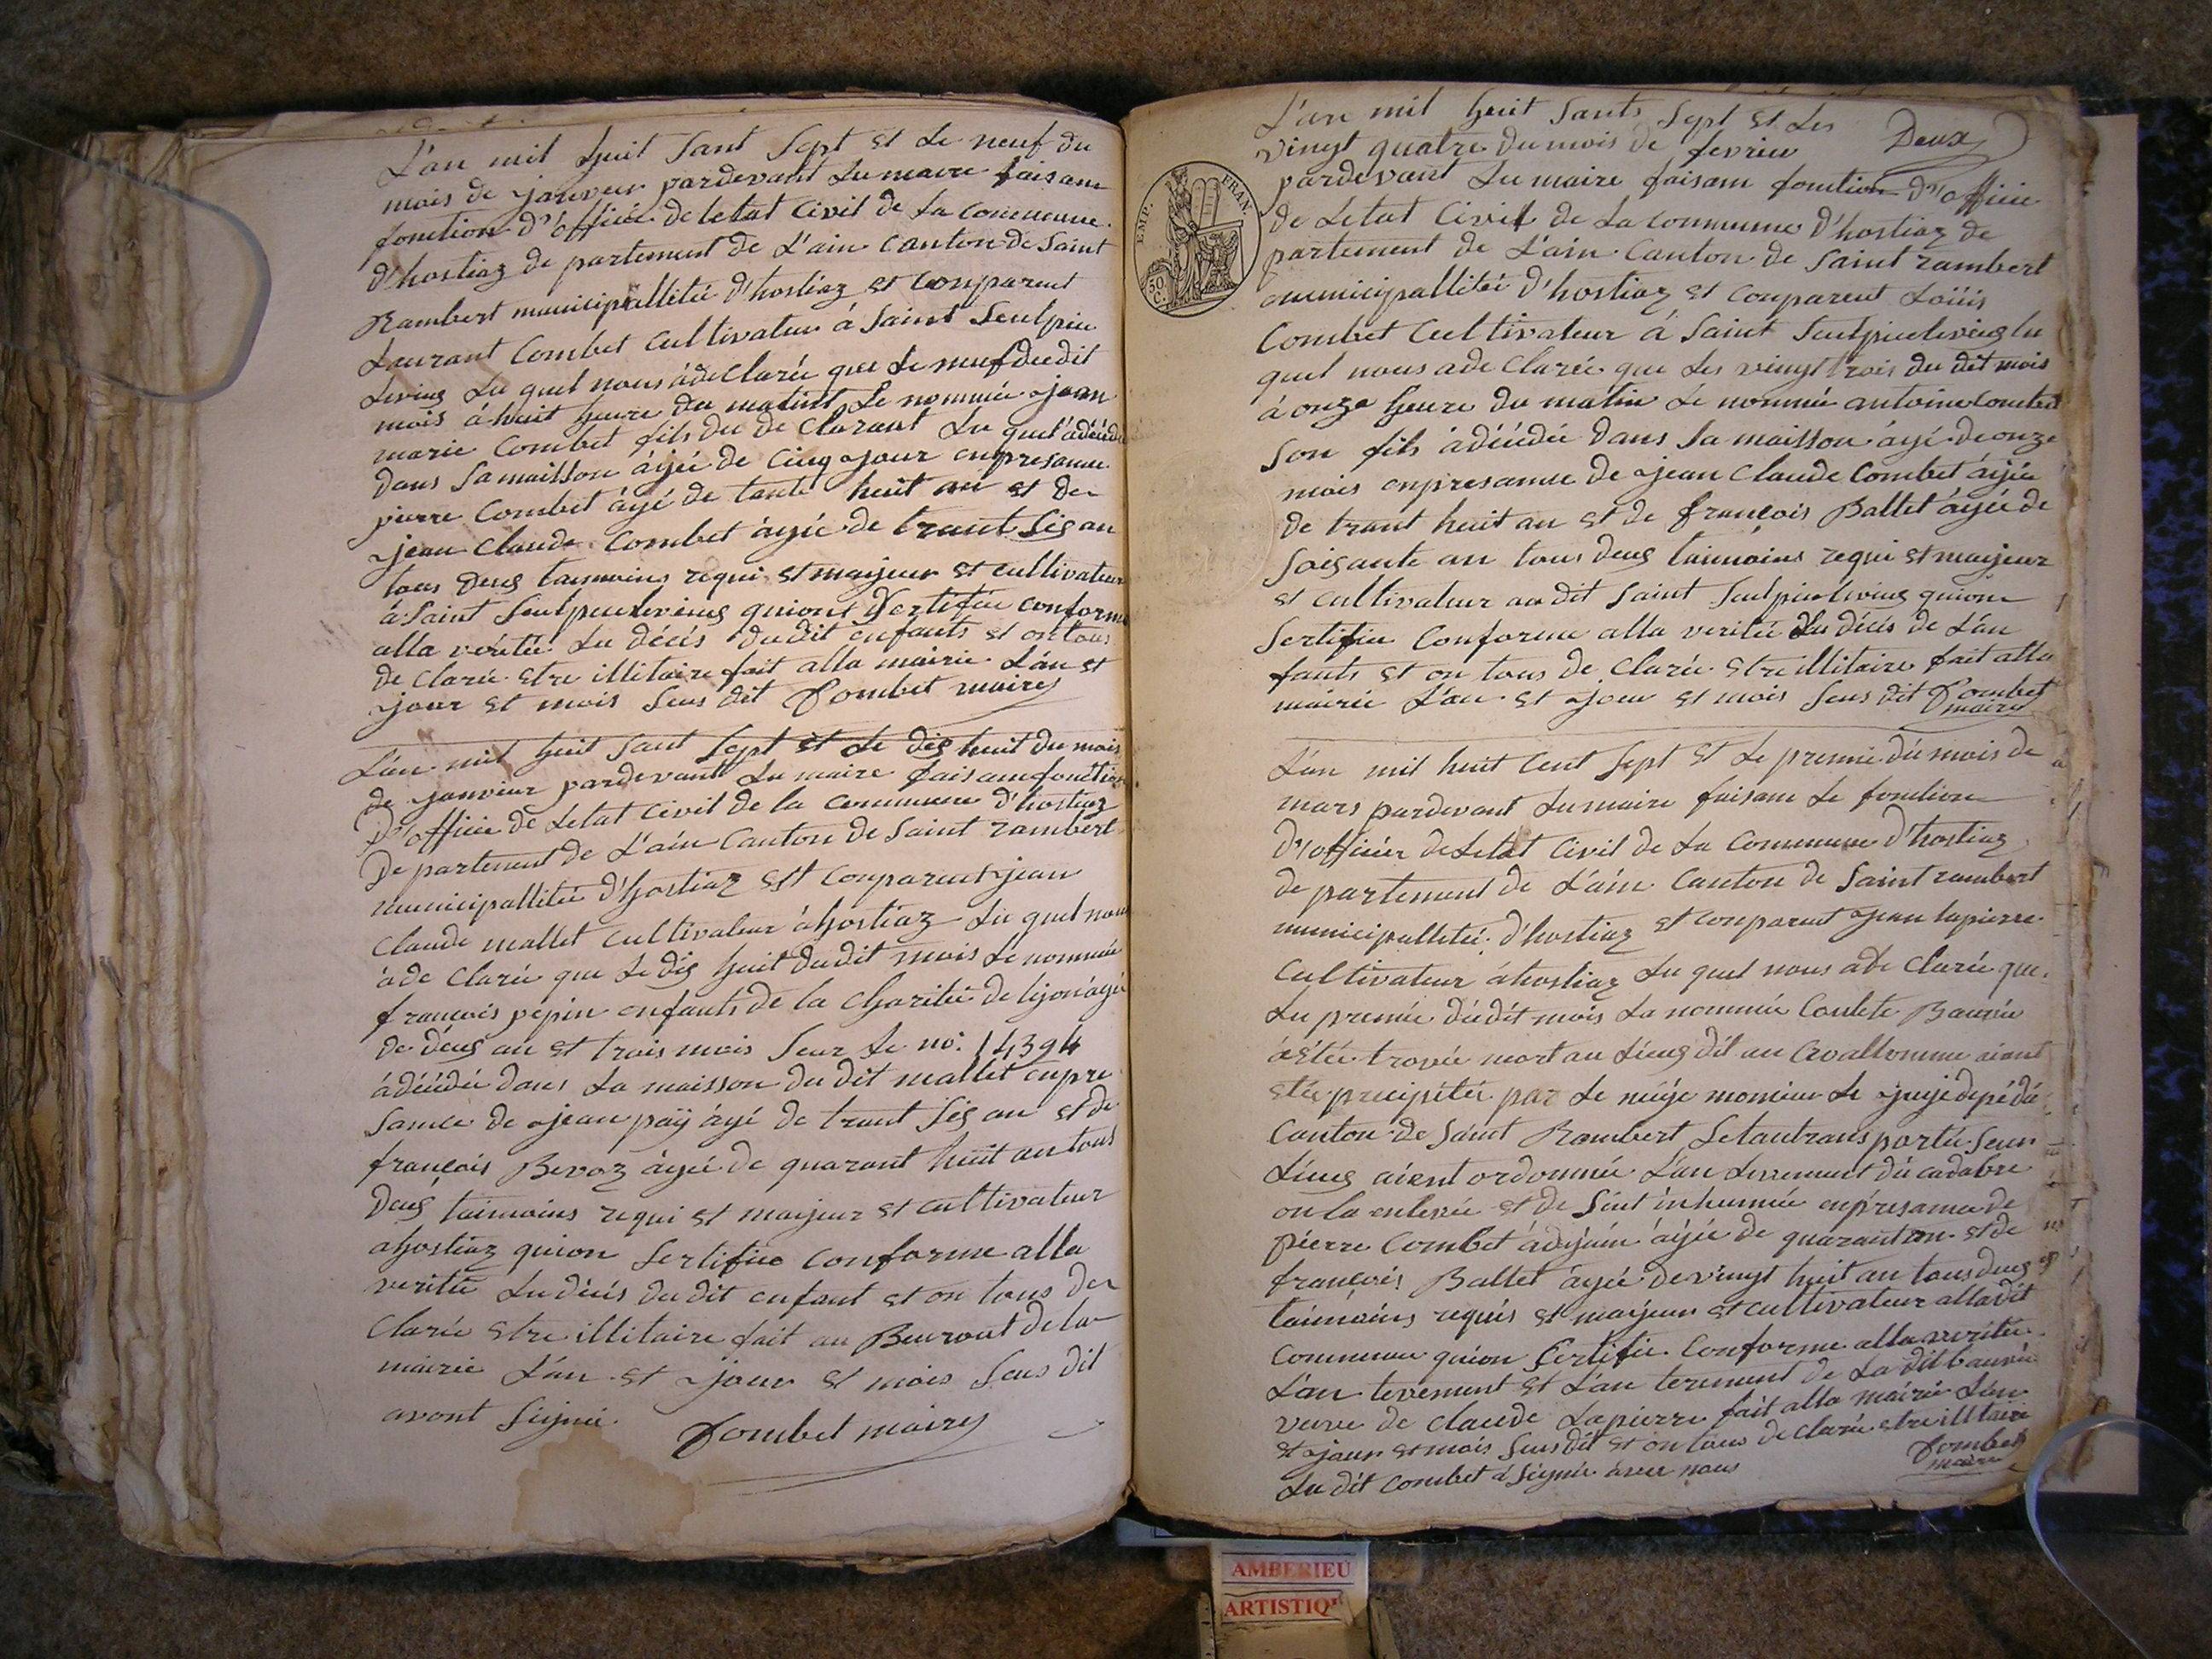 L'an mil huit sant sept et le neuf du
mois de janvier pardevant lu maire faisant
fonction d'officié de letat civil de la commune
d'hostiaz de partement de L'ain canton de saint
Rambert municipallitée d'hostiaz et conparent
Laurant Combet cultivateur à saint seulpiu
levieus lu quel nous àdeclarée que le neuf dudit
mois à huit heure du matint le nommée jean
marie Combet fils du declarant lu quel àdéédé
dans samaisson àjée de cinq jour enpresance
pierre Combet àjé de tante huit an et de
jean claude Combet àjée de trant sis an
tous deus taimoins requi et majeur et cultivateur
à saint seulpiulevieus quiont sertifiée conforme
alla véritée lu décés dudit enfants et on tous
declarée etre illitaire fait alla mairie L'an et
jour et mois sus dit Combet maire
L'an mil huit sant sept et le dis huit du mois
de janvier pardevant lu maire faisant fonction
d'officié de letat civil de la commune d'hostiaz
de partement de L'ain canton de saint rambert
municipallitée d'hostiaz est conparent jean
claude mallet cultivateur àhostiaz lu quel nous
àde clarée que le dis huit dudit mois le nommée
françois pepin enfants de la charitée de lijon àjé
de deus an et trois mois seur le no: 14394
àdéédé dans la maisson du dit mallet enpre
sance de jean paÿ àjé de trant sis an et de
françois Bevoz àjée de quarant huit an tous
deus taimoins requi et majeur et cultivateur
ahostiaz quion sertifiée conforme alla
veritée lu décés du dit enfant et on tous de
clarée etre illitaire fait au Beurout de la
mairie L'an et jour et mois sus dit
avont sijnée Combet maire
L'an mil huit sants sept et les Deux
vingt quatre du mois de fevrier
pardevant lu maire faisant fonction d'officié
de letat civil de la commune d'hostiaz de
partement de L'ain canton de saint rambert
municipallitée d'hostiaz et conparent Loüis
Combet cultivateur à saint seulpiulevieus lu
quel nous ade clarée que les vingt trois du dit mois
à onze heure du matin le nommé antoine Combet
son fils àdéédée dans sa maisson àjé de onze
mois enpresance de jean claude Combet àjée
de trant huit an et de françois Ballet àjée de
soisante an tous deus taimoins requi et majeur
et cultivateur au dit saint seulpiulevieus quion
sertifiée conforme alla veritée du décés de L'an
fants et on tous de clarée etre illitaire fait alla
mairie L'an et jour et mois sus dit Combet
maire
L'an mil huit cent sept et le premié du mois de
mars pardevant lu maire faisant le fonction
d'officiér de letat civil de la commune d'hostiaz
de partement de L'ain canton de saint rambert
municipallitée d'hostiaz et conparent jean lapierre
cultivateur àhostiaz lu quel nous ade clarée que
lu premié dudit mois la nommée Baurée
àétée trovée mort au lieus dit au aiant
etée precipitée par le néije monsieur le juje depé du
canton de saint Rambert setantransportée seur
lieus aient ordonnée L'an levement du cadabre
on la enlevée et de suit inhumée enpresance de
pierre Combet àdijoin àjée de quarant an et de
françois Ballet àjée devingt huit an tous deus
taimoins requis et majeur et cultivateur alladit
commune quion sertifiée conforme alla veritée
L'an levement et L'an terement de la dit baurée
veuve de claude Lapierre fait alla mairie L'an
et jour et mois sus dit et on tous de clarée etre illitaire
lu dit Combet à sijnée avec nous Combet
maire
EMP. FRAN.
50 C.
AMBERIEU
ARTISTIQ